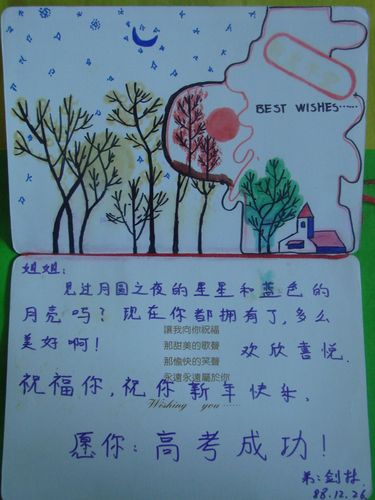 BEST WISHES......
姐姐:
见过月圆之夜的星星和蓝色的
月亮吗? 现在你都拥有了,多么
美好啊!
讓我向你祝福
那甜美的歌聲
那愉快的笑聲
永遠永遠屬於你
欢欣喜悦.
祝福你,祝你新年快乐,
Wishing you ......
愿你:高考成功!
弟:剑林
88.12.26